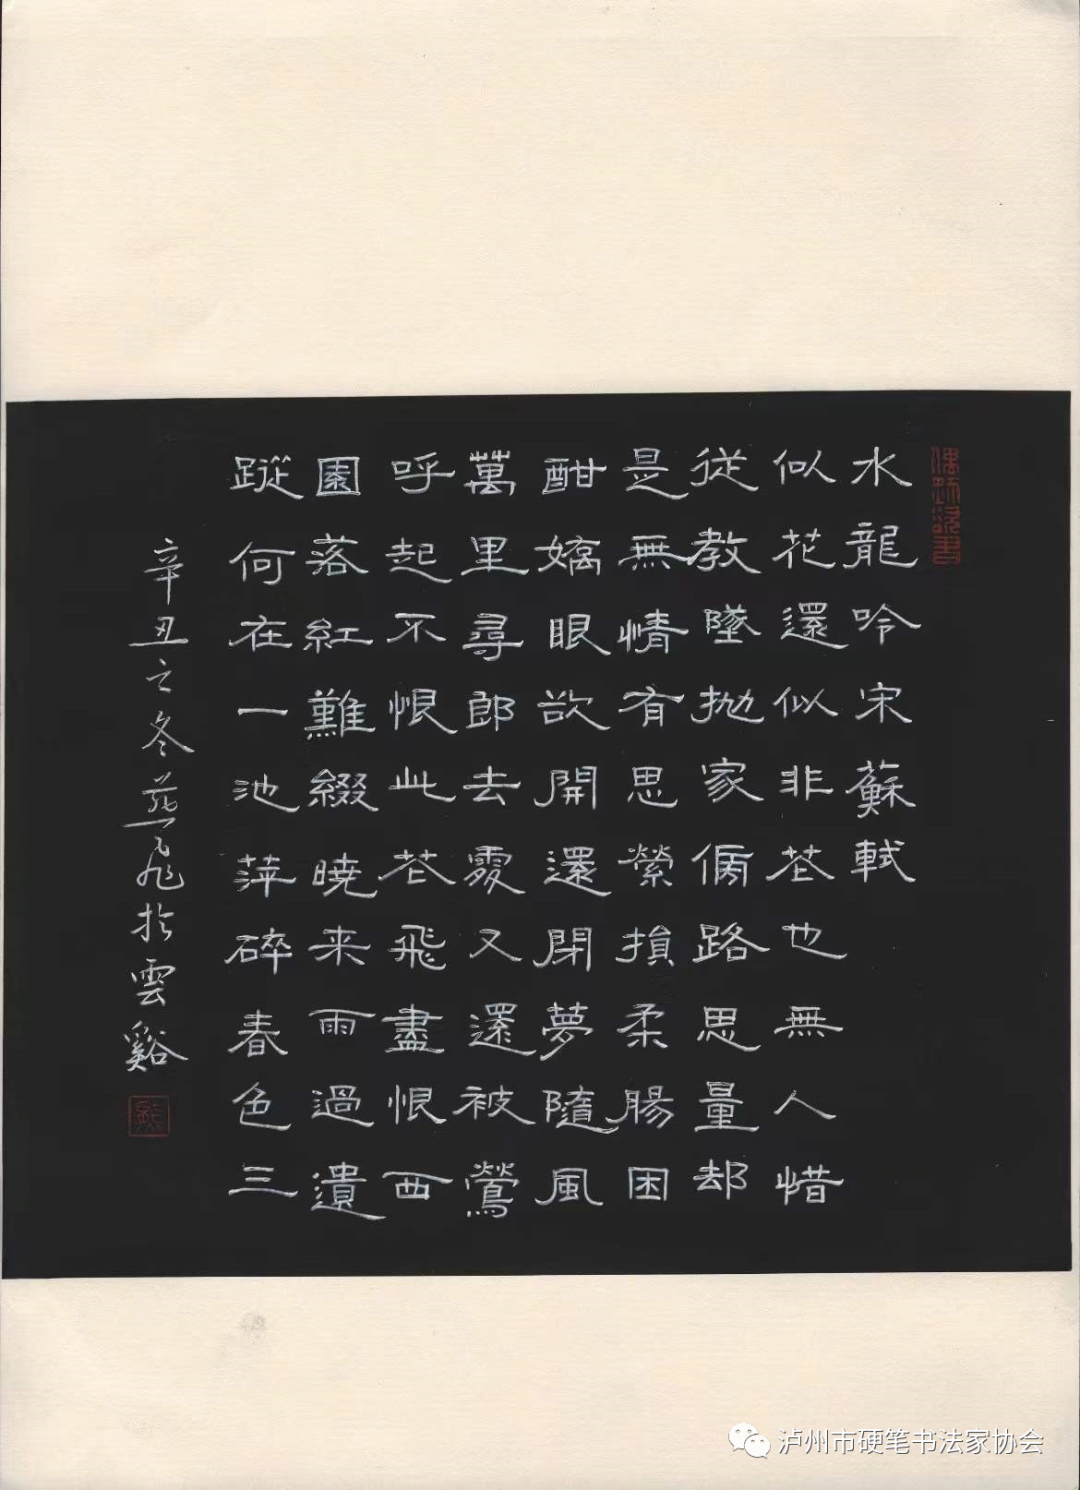 水龍吟宋蘇軾
似花還似非花也無人惜
從教墜抛家傍路思量却
是無情有思縈損柔腸困
酣嬌眼欲開還閉夢隨風
萬里尋郎去處又還被鶯
呼起不恨此花飛盡恨西
園落紅難綴曉来雨過遺
蹤何在一池萍碎春色三
辛丑之冬燕飛於雲谿
泸州市硬笔书法家协会